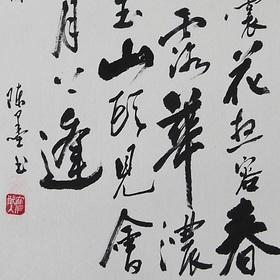 裳花想容春
露華濃
玉山頭見會
月下逢